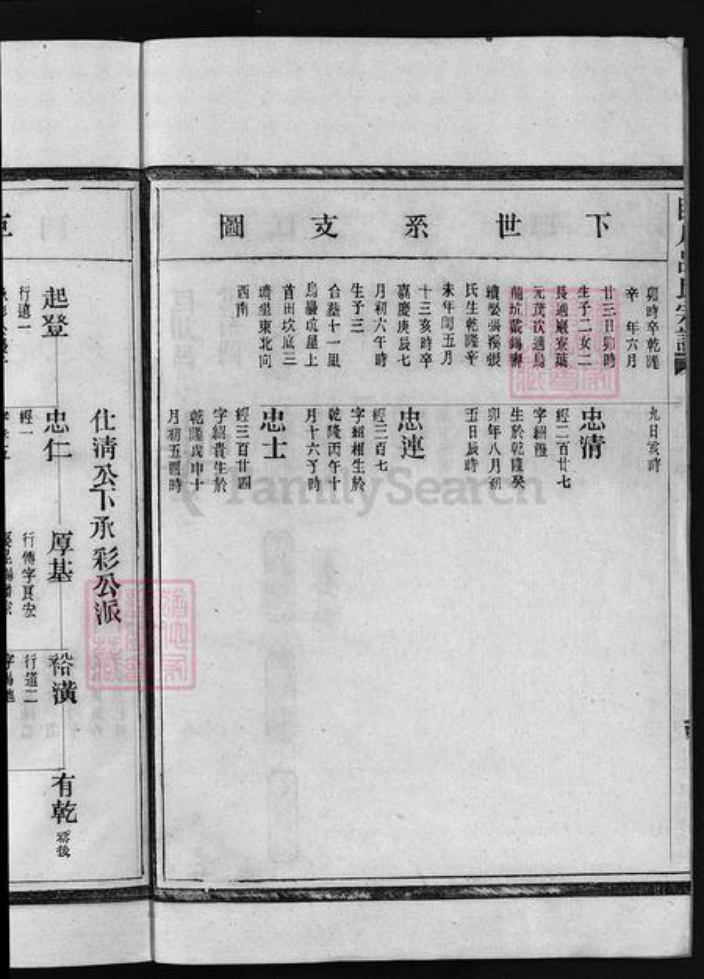 圖支系世下
卯時卒乾隆
辛　年六月
廿三日卯時
生子二女二
長適巖寮葉
元茂次適烏
龍坑戴錫壽
續娶張溪張
氏生乾隆辛
未年閏五月
十三亥時卒
嘉慶庚辰七
月初六午時
生子三
合塟十一里
烏巖坑屋上
首田坎底三
壙坐東北向
西南
九日亥時
忠清
經二百廿七
字紹澄
生於乾隆癸
卯年八月初
五日辰時
忠連
經三百七
字紹相生於
乾隆丙午十
月十六丁時
忠士
經三百廿四
字紹貴生於
乾隆戊申十
月初五酉時
仕清公下承彩公派
起登
行道一
忠仁
經一
厚基
行傳字良宏
裕潢
行道二
有乾
FamilySearch